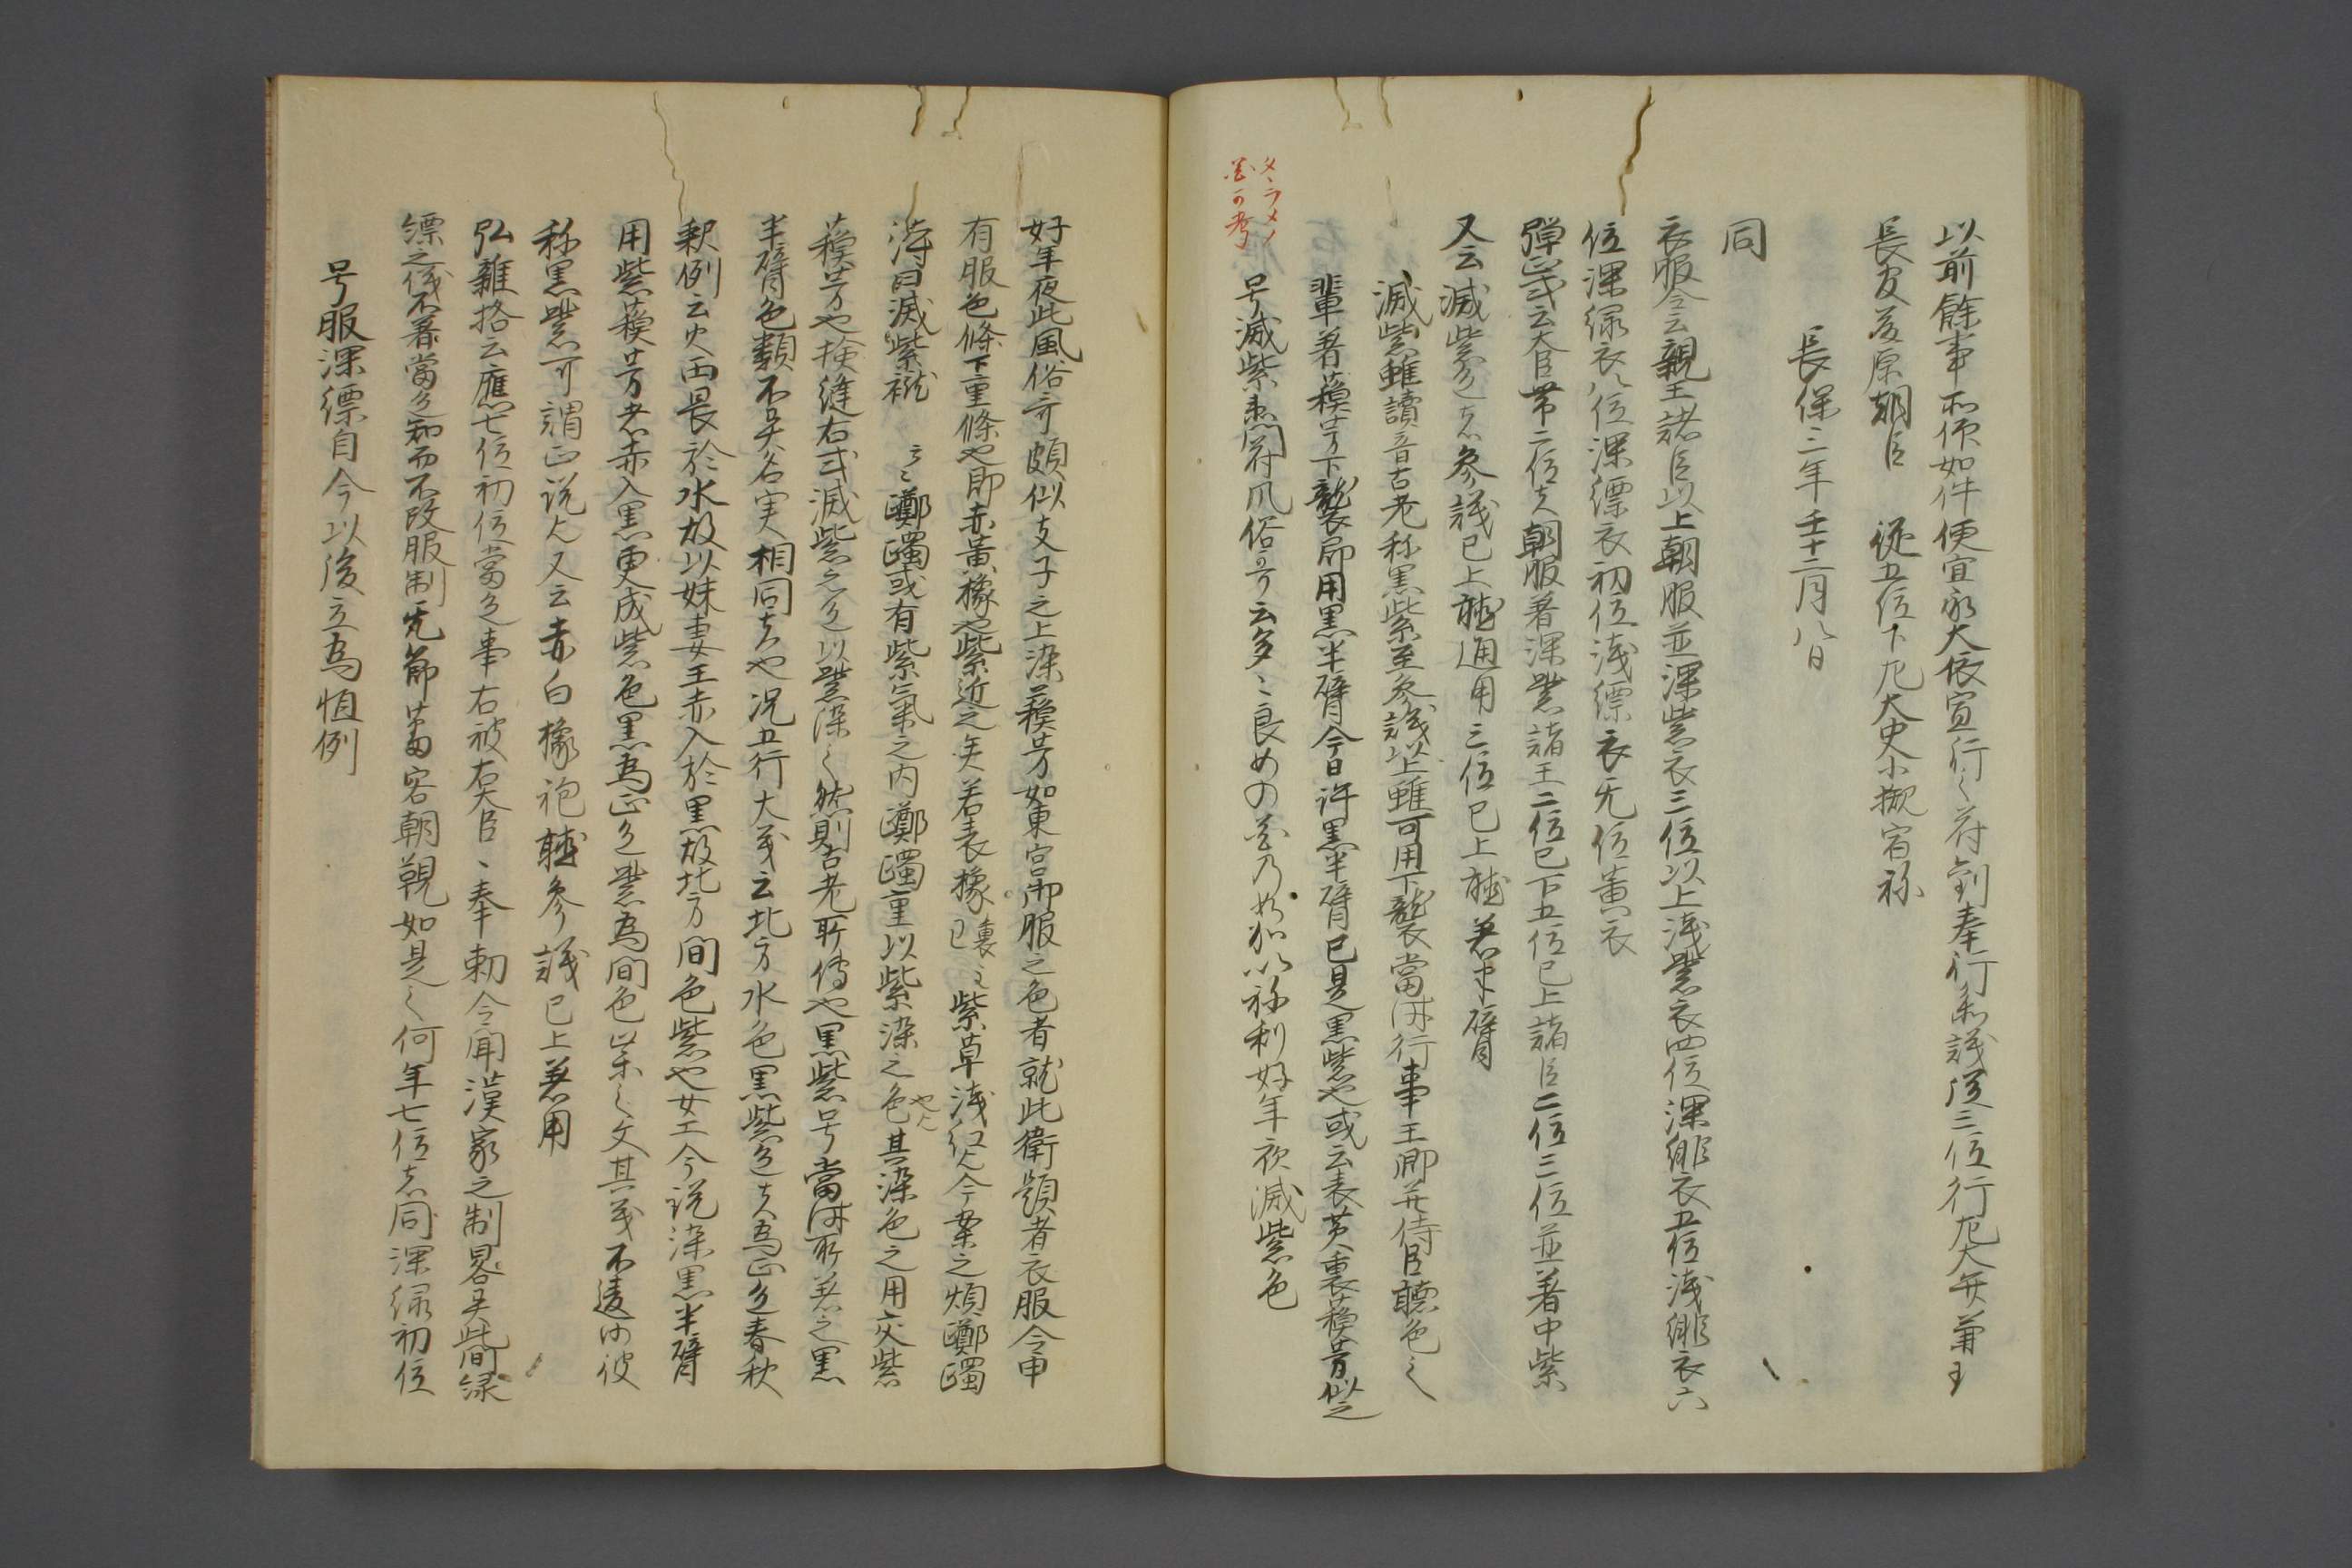 以前餘事所仰如件使宜承大依宣行之符到奉行参議従三位行左大弁兼
長官藤原朝臣　従五位下左大史小槻宿祢
長保三年壬十二月八日
同
衣服令云親王諸臣以上朝服並深紫衣三位以上浅紫衣四位深緋衣五位浅緋衣六
位深緑衣八位深縹衣初位浅縹衣无位黄衣
弾正式云大臣帯二位者朝服着深紫諸王二位已下五位已上諸臣二位三位並着中紫
又云滅紫色者参議已上聴通用三位已上聴着半臂
滅紫雖讀音古老称黒紫至参議以上雖可用下襲當時行事王卿并侍臣聴色之
輩着蘓芳下襲即用黒半臂今日許黒半臂已是黒紫也或云表黄裏蘓芳似之
号滅紫焉符風俗哥云多々良めの花乃如加以祢利好年夜滅紫色
好年夜此風俗哥頗似支子之上染蘓芳如東宮御服之色者就此衛頭者衣服令中
有服色條下重條也即赤黄橡也紫近之矣若表橡裏已之紫草浅紅今案之煩躑躅
滞曰滅紫襪　之躑躅或有紫氣之内躑躅重以紫染之色也其染色之用灰紫
蘓芳也検縫右式滅紫之色以紫深之然則古老所傳也黒紫号當時所着之黒
半臂色類不異名実相同者也況五行大義云北方水色黒紫色者為正色春秋
釈例云火西畏於水故以妹妻王赤入於黒故北方間色紫也女工今説染黒半臂
用紫蘓芳者赤入黒更成紫色黒為正色紫為間色葉之文其義不違
称黒紫可謂正説又云赤白橡袍聴参議已上着用
弘雜格云應七位初位當色事右被右大臣奉勅今聞漢家之制畧異此間緑
縹之伐不着當色知而不改服制无節番客朝覲如是之何年七位者同深緑初位
号服深縹自今以後立為恒例